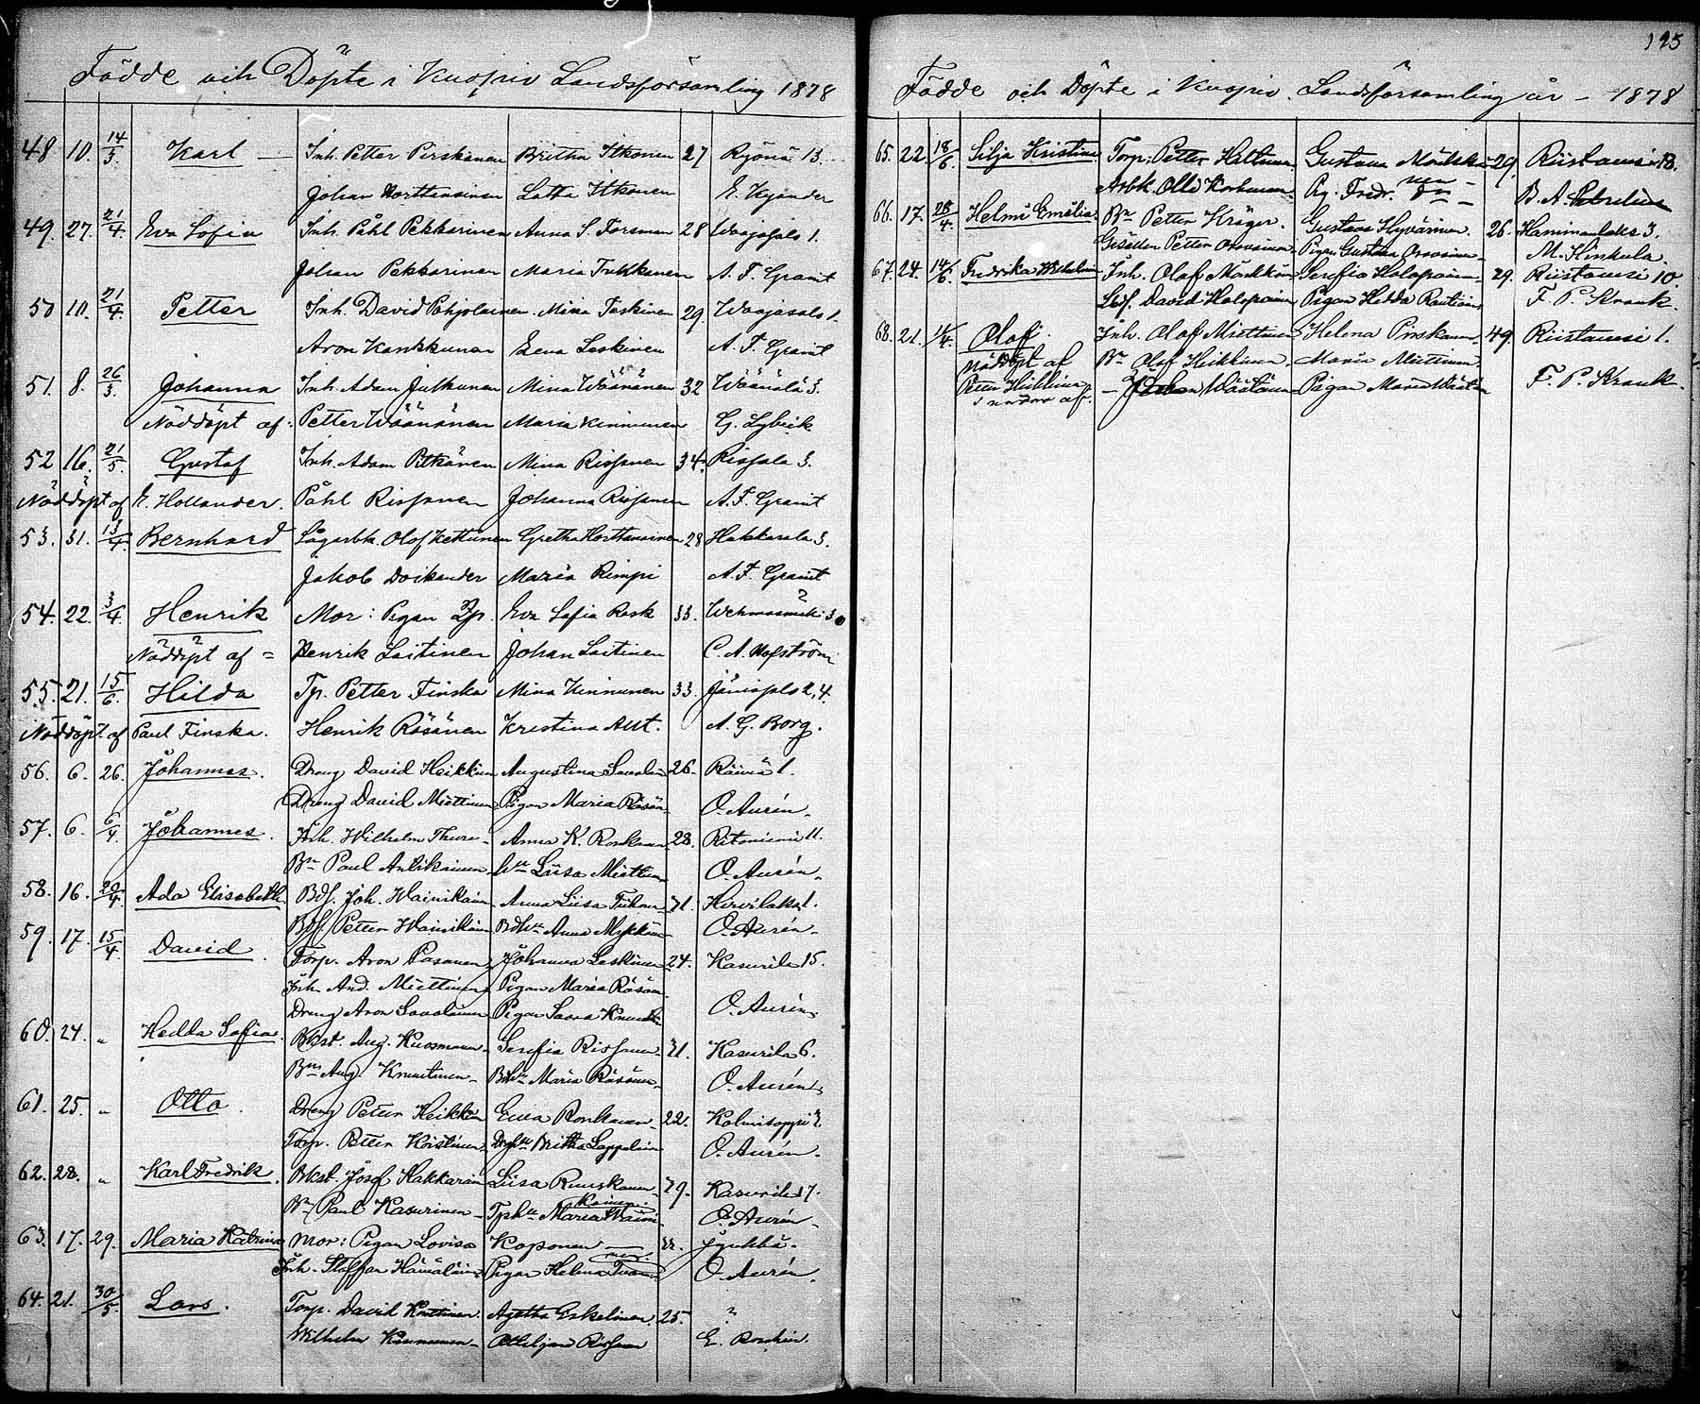 Födde och Döpte i Kuopio Landsförsamling 1878
48 10. 14/3. Karl — Inh. Petter Pirskanen Britha Itkonen 27 Ryönä 13.
Johan Horttanainen Lotta Itkonen E. Kyander
49. 27. 21/4. Eva Sofia Inh. Påhl Pekkarinen Anna S. Forsman 28 Waajasalo 1.
Johan Pekkarinen Maria Trukkanen A. F. Granit
50 10. 21/4. Petter Inh. David Pohjolainen Mina Taskinen 29. Waajasalo 1.
Aron Kankkunen Leena Laskinen A. F. Granit
51. 8. 26/3. Johanna Inh. Adam Jutkunen Mina Wäänänen 32 Wäänälä 3.
Nöddöpt af: Petter Wäänänen Maria Kinnunen G. Lybeck
52 16. 21/5. Gustaf Inh. Adam Pitkänen Mina Rissanen 34. Rissala 3.
Nöddöpt af E. Hollander. Påhl Rissanen Johanna Rissanen A. F. Granit
53. 31. 13/4. Bernhard Lågarbk. Olof Kettunen Gretha Horttanainen 28 Hakkarala 3.
Jakob Maria Rimpi A. F. Granit
54. 22. 3/4. Henrik Mor: Pigan Eva Sofia Rask 33. Wehmasmäki 30
Nöddöpt af = Henrik Laitinen Johan Laitinen C. A. Hofström
55. 21. 15/6. Hilda Tp. Petter Finska Mina Kinnunen 33. Jänissalo 2, 4.
Nöddöpt af Paul Finska. Henrik Räsänen Kristina Aut. A. G. Borg.
56. 6. 26. Johannes. Dreng David Heikkin Augustina Savolain 26. Räimä 1.
Dreng David Miettinen Pigan Maria Räsän O. Aurén.
57. 6. 6/4. Johannes. Inh. Wilhelm Thure Anna K. Ronkanen 28. Ritoniemi 11.
Bn Paul Antikainen Hu Liisa Miettinen O. Aurén.
58. 16. 29/4. Ada Elisabeth Bdf. Joh. Wainikain Anna Liisa 31. Hirvilaks 1.
Bdf Petter Wainikain Bdhu Anna Mykkän O. Aurén.
59. 17. 15/4. David. Torp. Aron Pasanen Johanna Leskinen 24. Kasurila 15.
Inh. And. Miettinen Pigan Maria Räsän
Dreng Aron Savolainen Pigan Saara O. Aurén.
60. 24. " Hedda Sofia. Bkst. Aug. Kuosmanen Serefia Rissanen 31. Kasurila 6.
Bns Aug. Knuutinen Bdhu Maria Räsänen O. Aurén.
61. 25. " Otto. Dreng Petter Heikkin Eva Ronkanen 22. Kolmisoppi 2.
Torp. Petter Koistinen Britha Lappalain O. Aurén.
62. 28. " Karl Fredrik. Bkst. Josef Hakkarain Liisa Ruuskanen 39. Kasurila 17.
Bn Paul Kasurinen Tphu Maria Waini-kainen O. Aurén.
63. 17. 29. Maria Katrina Mor: Pigan Lovisa Koponen Jynkkä.
Inh. Staffan Hämäläin Pigan Helena O. Aurén.
64. 21. 30/5. Lars. Torp. David Agatha Eskelinen 25. ?
Wilhelm Ottiljana Rissanen E.
195
Födde och Döpte i Kuopio Landsförsamling år 1878
65. 22. 18/6. Silja Kristina Torp. Petter Hiltunen Gustava 29. Riistavesi 13.
Arbk. Olli Korhonen Pig. Fredr. B. A.
66. 17. 28/4. Helmi Emilia. Bn Petter Kröger. Gustava Hyvärinen. 26. Haminanlaks 3.
Gesällen Petter Pigan Gustava M. Hinkula.
67. 24. 14/6. Fredrika Wilhelmin Inh. Olof Serefia Holopainen 29. Riistavesi 10.
David Holopainen Pigan Hedda Rautiain F. P. Krank.
68. 21. 14/4. Olof. Inh. Olof Miettinen Helena Pirskanen 49. Riistavesi 1.
Nöddöpt af Bn Olof Heikkinen Maria Miettinen
Petter Heikkinen Johan Wäätäin Pigan Maria Wäätäin F. P. Krank.